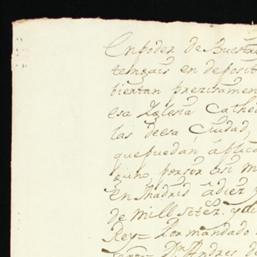 En poder de Vuestra
tengais en deposit
biertan prezitamen
esa Yglesia Cathe
las deesa Ciudad
que puedan aplica
por ser asi m
En Madrid a diez y
de mill setez. y
Rey = Por mandado
Dn. Andres de